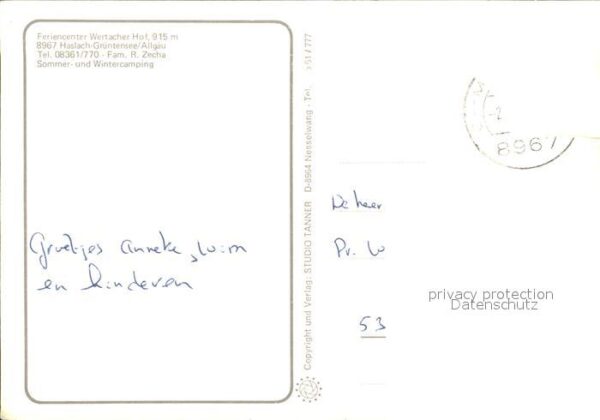 Feriencenter Wertacher Hof, 915 m
8967 Haslach-Grüntensee/Allgäu
Tel. 08361/770 - Fam. R. Zecha
Sommer- und Wintercamping
Groetjes Anneke, Wim
en kinderen
Copyright und Verlag: STUDIO TANNER D-8964 Nesselwang - Tel.
8967
De heer
Pr. W
53
privacy protection
Datenschutz